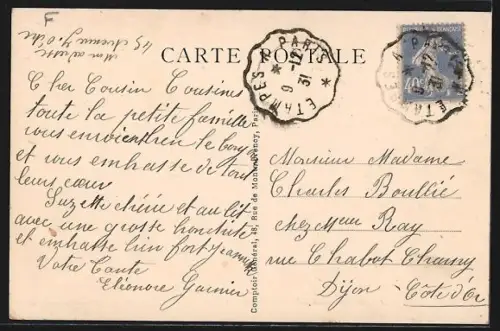 F
Mon adresse
45 avenue
CARTE POSTALE
ETAMPES A PARIS
9 -12
31
40
Cher Cousin Cousine
toute la petite famille
vous envoient bien le bonjour
et vous embrasse de tout
leurs cœur
Suzette chérie et au lit
avec une grosse bronchite
et embrasse bien fort Jeannine
Votre Tante
Eléonore Garnier
Comptoir Général, 48, Rue de Montmorency, Paris
Monsieur Madame
Charles Boullié
chez Meur Ray
rue Chabot Charny
Dijon - Côte d'Or